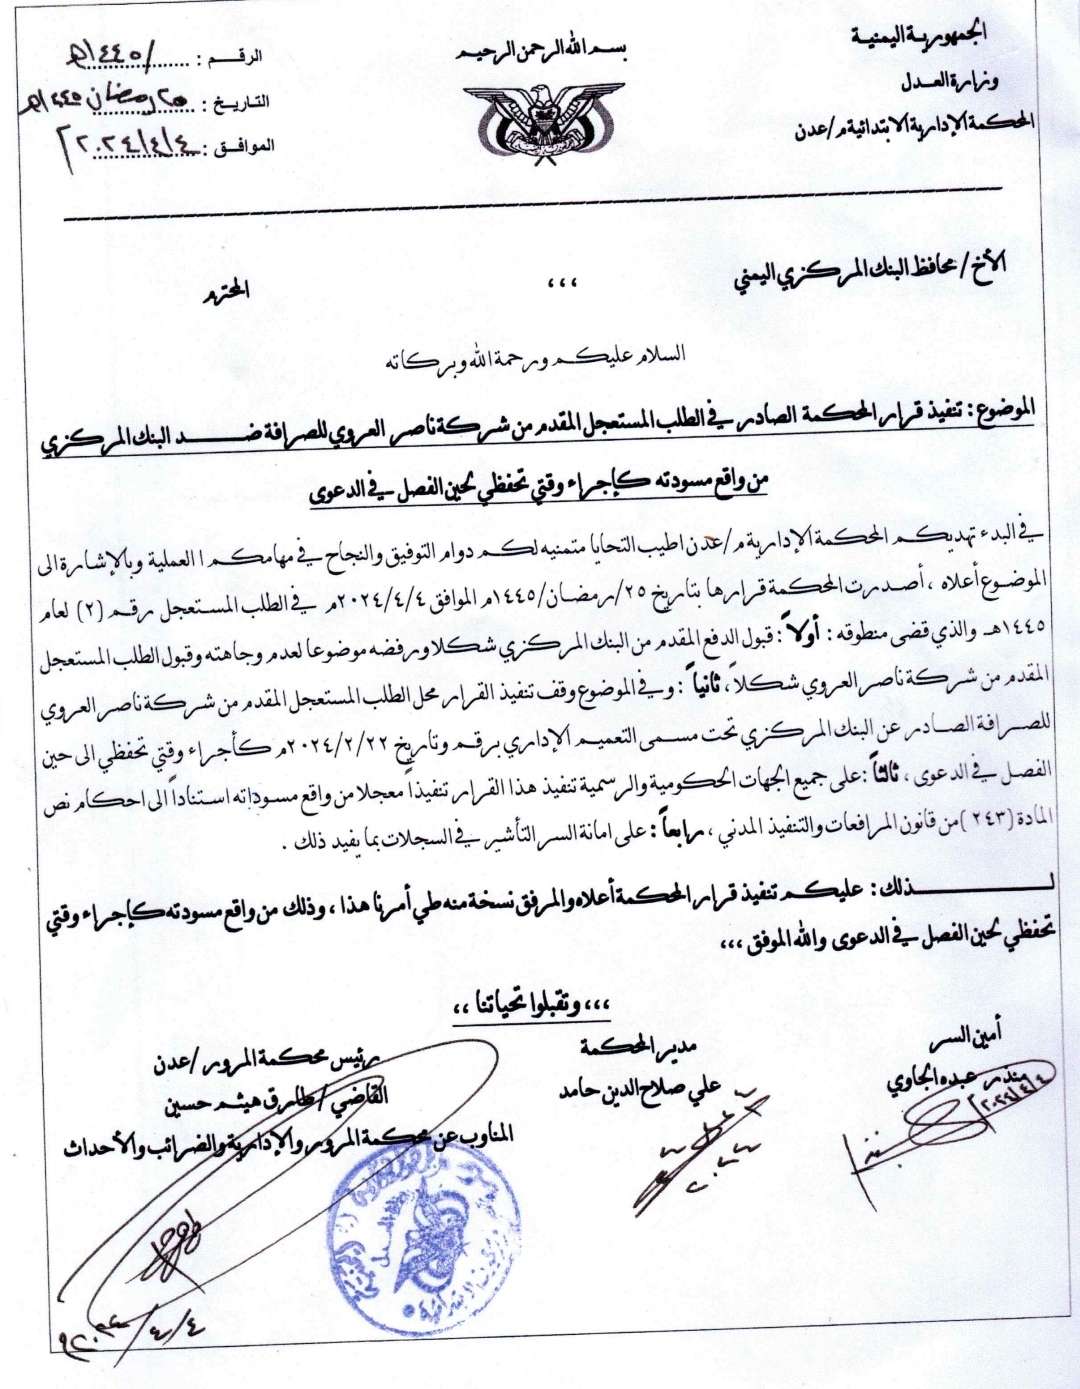 الجمهورية اليمنية
وزارة العدل
المحكمة الإدارية الابتدائية م/عدن
بسم الله الرحمن الرحيم
الرقم : ........../١٤٤٥هـ
التاريخ : ٢٥ رمضان ١٤٤٥هـ
الموافق : ٢٠٢٤/٤/٤م
الأخ / محافظ البنك المركزي اليمني ،،، المحترم
السلام عليكم ورحمة الله وبركاته
الموضوع : تنفيذ قرار المحكمة الصادر في الطلب المستعجل المقدم من شركة ناصر العروي للصرافة ضد البنك المركزي
من واقع مسودته كإجراء وقتي تحفظي لحين الفصل في الدعوى
في البدء تهديكم المحكمة الإدارية م/عدن اطيب التحايا متمنيه لكم دوام التوفيق والنجاح في مهامكم ا العملية وبالإشارة الى
الموضوع أعلاه ، أصدرت المحكمة قرارها بتاريخ ٢٥/رمضان/١٤٤٥م الموافق ٢٠٢٤/٤/٤م في الطلب المستعجل رقم (٢) لعام
١٤٤٥هـ والذي قضى منطوقه : أولاً : قبول الدفع المقدم من البنك المركزي شكلا ورفضه موضوعا لعدم وجاهته وقبول الطلب المستعجل
المقدم من شركة ناصر العروي شكلاً ، ثانياً : وفي الموضوع وقف تنفيذ القرار محل الطلب المستعجل المقدم من شركة ناصر العروي
للصرافة الصادر عن البنك المركزي تحت مسمى التعميم الإداري برقم وتاريخ ٢٠٢٤/٢/٢٢م كأجراء وقتي تحفظي الى حين
الفصل في الدعوى ، ثالثاً : على جميع الجهات الحكومية والرسمية تنفيذ هذا القرار تنفيذاً معجلا من واقع مسوداته استناداً الى احكام نص
المادة (٢٤٣) من قانون المرافعات والتنفيذ المدني ، رابعاً : على امانة السر التأشير في السجلات بما يفيد ذلك .
لــذلك : عليكم تنفيذ قرار المحكمة أعلاه والمرفق نسخة منه طي أمرنا هذا ، وذلك من واقع مسودته كإجراء وقتي
تحفظي لحين الفصل في الدعوى والله الموفق ،،،
،،، وتقبلوا تحياتنا ،،
أمين السر
منذر عبده الجاوي
٢٠٢٤/٤/٤
مدير المحكمة
علي صلاح الدين حامد
رئيس محكمة المرور /عدن
القاضي / طارق هيثم حسين
المناوب عن محكمة المرور والإدارية والضرائب والأحداث
٢٠٢٤/٤/٤م